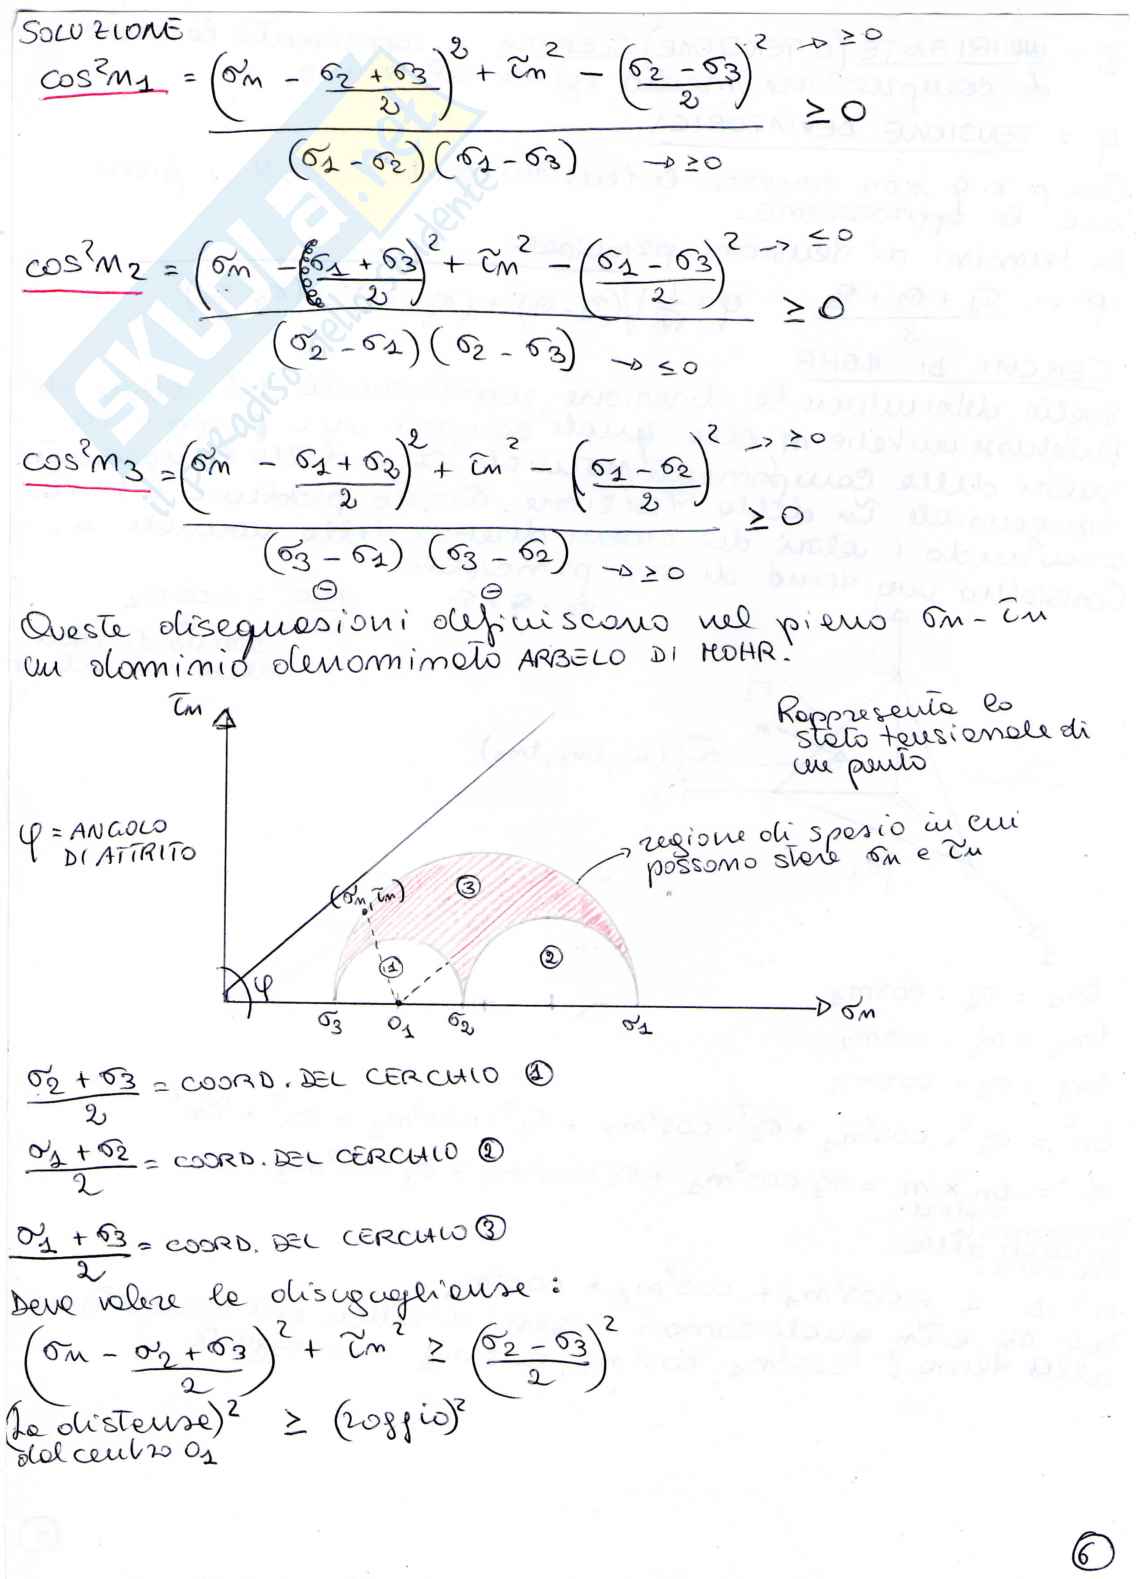 SOLUZIONE
cos²n1 = (σn - (σ2 + σ3)/2)² + τn² - ((σ2 - σ3)/2)² → ≥0
(σ1 - σ2)(σ1 - σ3) → ≥0
≥ 0
cos²n2 = (σn - (σ1 + σ3)/2)² + τn² - ((σ1 - σ3)/2)² → ≤0
(σ2 - σ1)(σ2 - σ3) → ≤0
≥ 0
cos²n3 = (σn - (σ1 + σ2)/2)² + τn² - ((σ1 - σ2)/2)² → ≥0
(σ3 - σ1) (σ3 - σ2) → ≥0
≥ 0
⊖ ⊖
Queste disequazioni definiscono nel piano σn - τn
un dominio denominato ARBELO DI MOHR.
τn
Rappresenta lo
stato tensionale di
un punto
φ = ANGOLO
DI ATTRITO
regione di spazio in cui
possono stare σn e τn
(σn, τn)
③
① ②
φ
σ3 O1 σ2 σ1 σn
(σ2 + σ3)/2 = COORD. DEL CERCHIO ①
(σ1 + σ2)/2 = COORD. DEL CERCHIO ②
(σ1 + σ3)/2 = COORD. DEL CERCHIO ③
Deve valere la disuguaglianza :
(σn - (σ2 + σ3)/2)² + τn² ≥ ((σ2 - σ3)/2)²
(la distanza)² ≥ (raggio)²
dal centro O1
6
SKUOLA.net
il paradiso dello studente